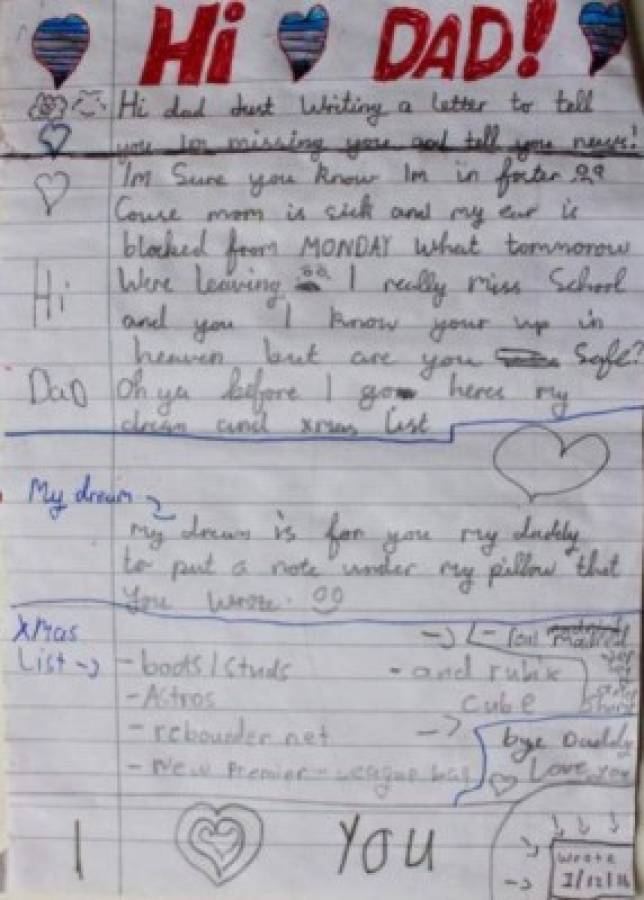 Hi DAD!
Hi dad Just Writing a letter to tell
you Im missing you and tell you news!
Im Sure you know Im in foster
Couse mom is sick and my ear is
blocked from MONDAY What tommorow
Were leaving I really miss School
and you I know your up in
heaven but are you Safe?
Oh ya before I go heres my
dream and xmas list
Hi
Dad
My dream
My dream is for you my daddy
to put a note under my pillow that
You Wrote.
XMas
List
- boots/studs
- Astros
- rebounder net
- New Premier-League ball
- and rubix
cube
bye Daddy
Love you
I YOU
wrote